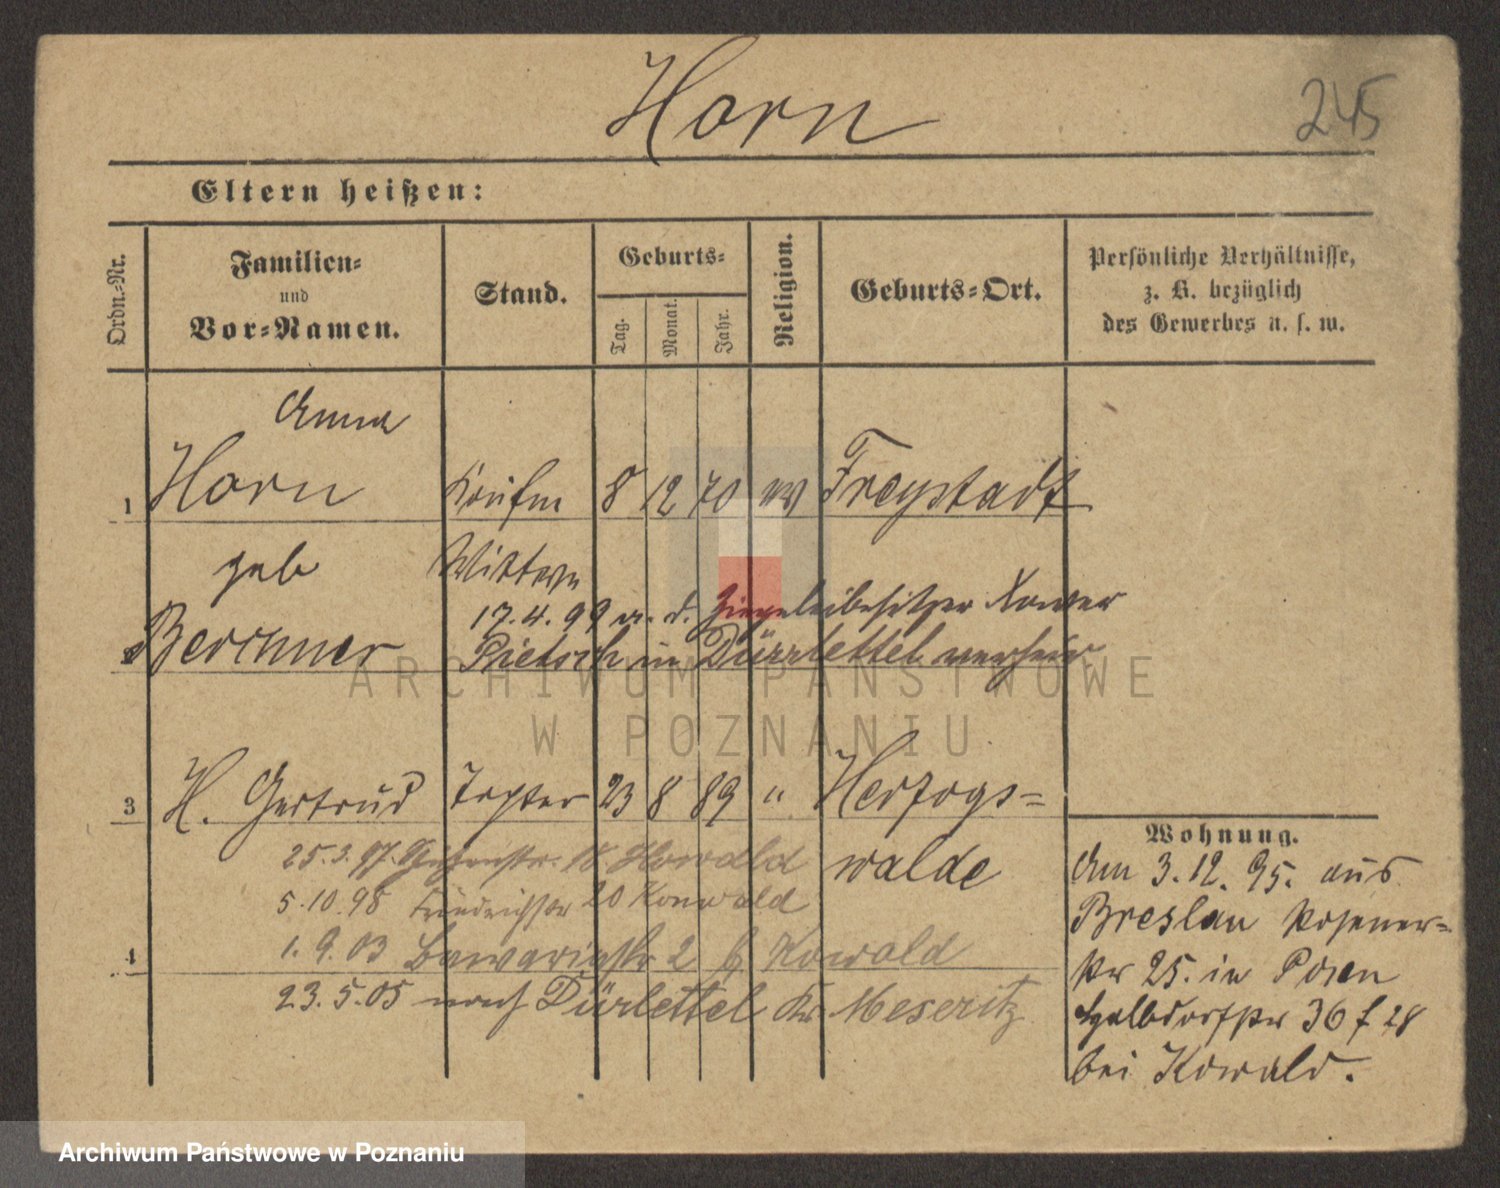 Horn
245
Eltern heißen:
Ordn.-Nr.
Familien-
und
Vor-Namen.
Stand.
Geburts-
Tag.
Monat.
Jahr.
Religion.
Geburts-Ort.
Persönliche Verhältnisse,
z. B. bezüglich
des Gewerbes u. s. w.
Anna
1 Horn Kaufm 8 12 70 ev Freystadt
geb Wittwe
17.4.99 m. d. Ziegeleibesitzer Xaver
2 Pietsch in Dürrlettel verheir
3 H. Gertrud Tochter 23 8 89 " Herzogs=
walde
25.3.97. 18 Howald
5.10.98 Friedrichstr 20 Konwald
4 1.9.03 2 Kowald
23.5.05 nach Dürlettel Kr Meseritz
Wohnung.
Am 3.12.95. aus
Breslau Posener=
str 25. in Posen
36 f 28
bei Kowald.
ARCHIWUM PAŃSTWOWE
W POZNANIU
Archiwum Państwowe w Poznaniu